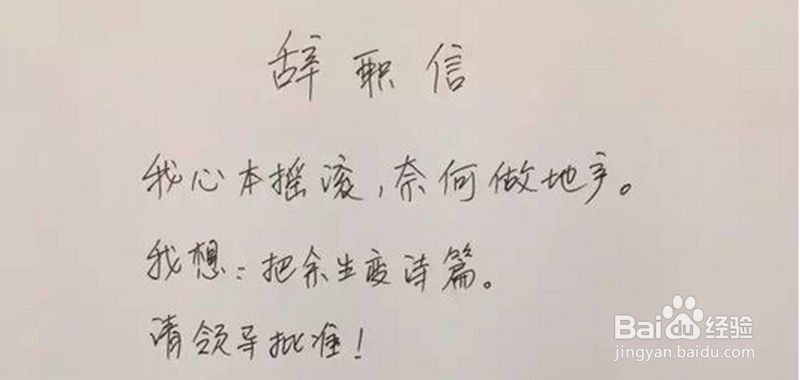 辞职信
我心本摇滚，奈何做地产。
我想：把余生变诗篇。
请领导批准！
Baidu经验
jingyan.baidu.com